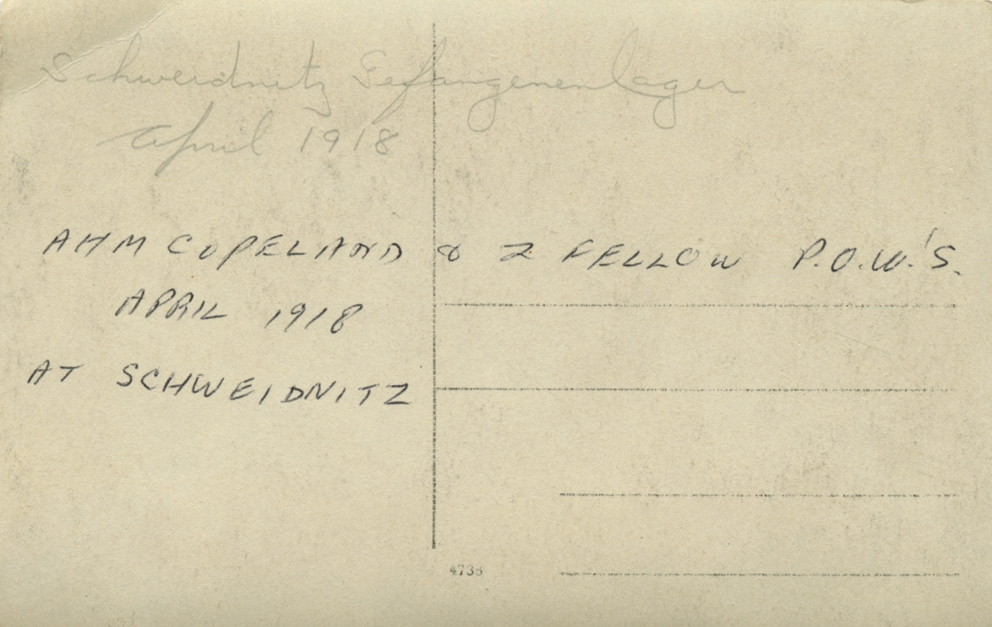 Schweidnitz Gefangenenlager
April 1918
AHM COPELAND & 2 FELLOW P.O.W.'S.
APRIL 1918
AT SCHWEIDNITZ
4738